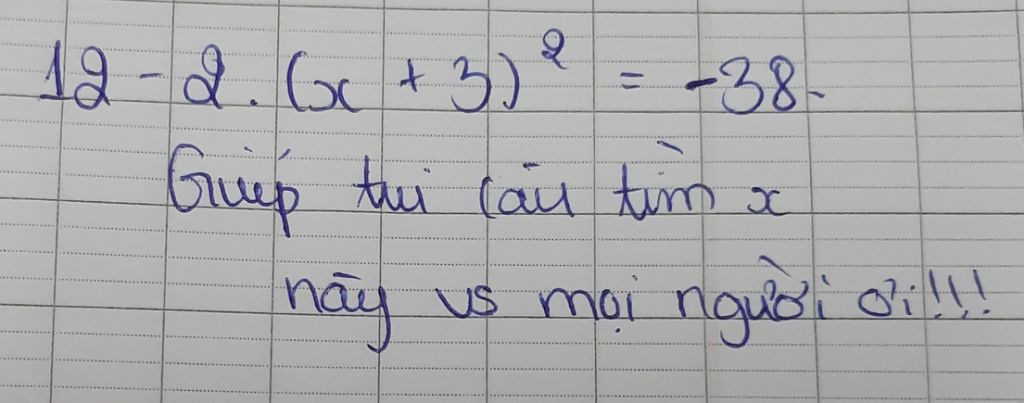 12 - 2. (x + 3)² = -38.
Giúp tui câu tìm x
này vs mọi người ơi!!!